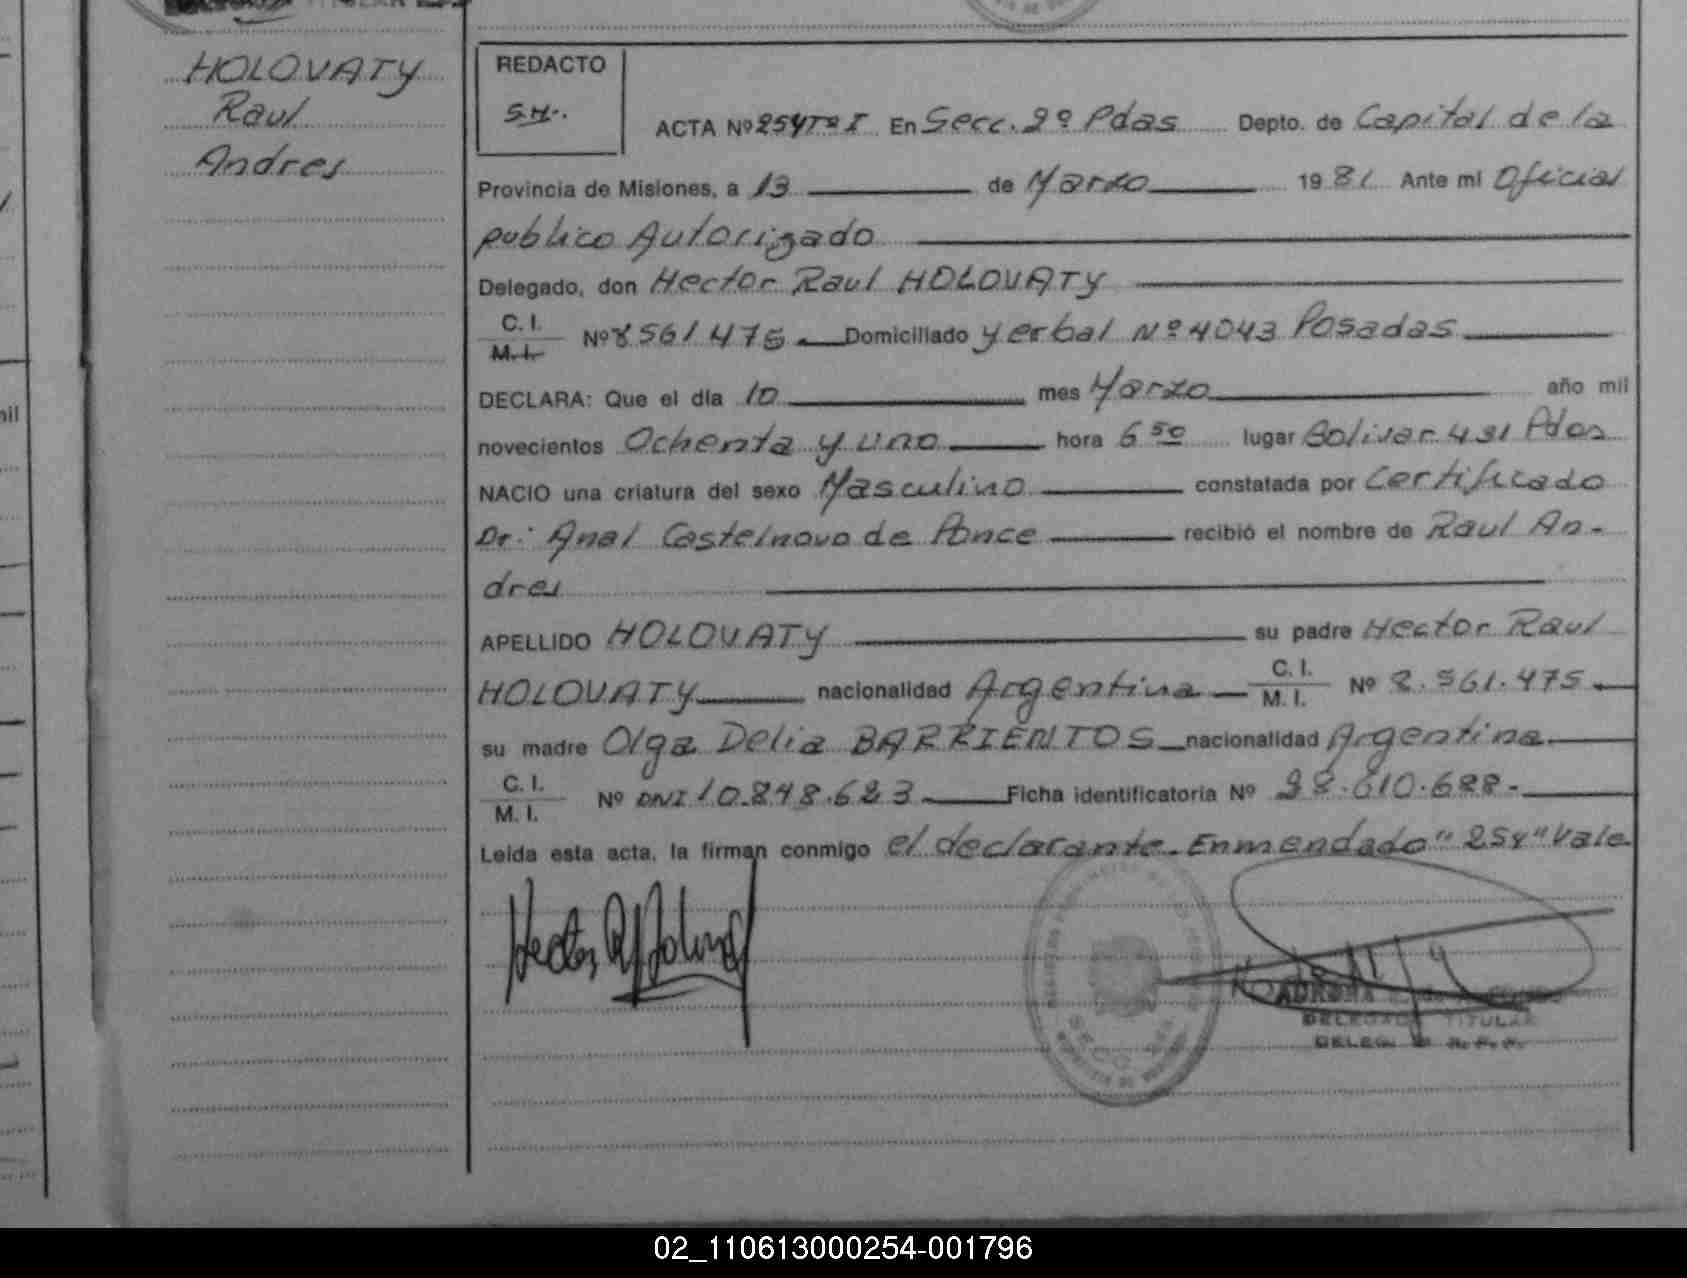 HOLOVATY
Raul
Andres
REDACTO
S.H.
ACTA Nº 254 Tº I En Secc. 2º Pdas Depto. de Capital de la
Provincia de Misiones, a 13 de Marzo 1981 Ante mi Oficial
publico Autorizado
Delegado, don Hector Raul HOLOVATY
C. I.
M. I. Nº 8561475 Domiciliado Yerbal Nº 4043 Posadas
DECLARA: Que el día 10 mes Marzo año mil
novecientos Ochenta y uno hora 6 50 lugar Bolivar 431 Pdas
NACIO una criatura del sexo Masculino constatada por Certificado
Dr: Anal Castelnovo de Ponce recibió el nombre de Raul An-
dres
APELLIDO HOLOVATY su padre Hector Raul
HOLOVATY nacionalidad Argentina C. I. M. I. Nº 8.561.475
su madre Olga Delia BARRIENTOS nacionalidad Argentina
C. I.
M. I. Nº DNI 10.848.623 Ficha identificatoria Nº 28.610.688.-
Leída esta acta, la firman conmigo el declarante. Enmendado "254" Vale
DELEGADO TITULAR
02_110613000254-001796